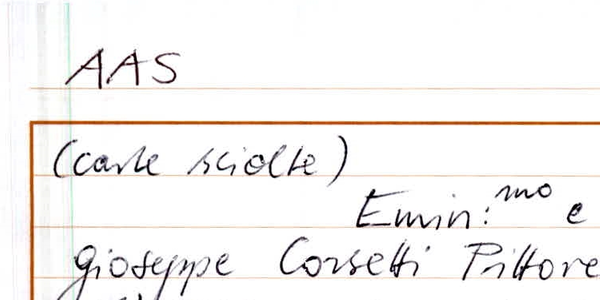 AAS
(carte sciolte)
Emin:mo e
Giuseppe Corsetti Pittore